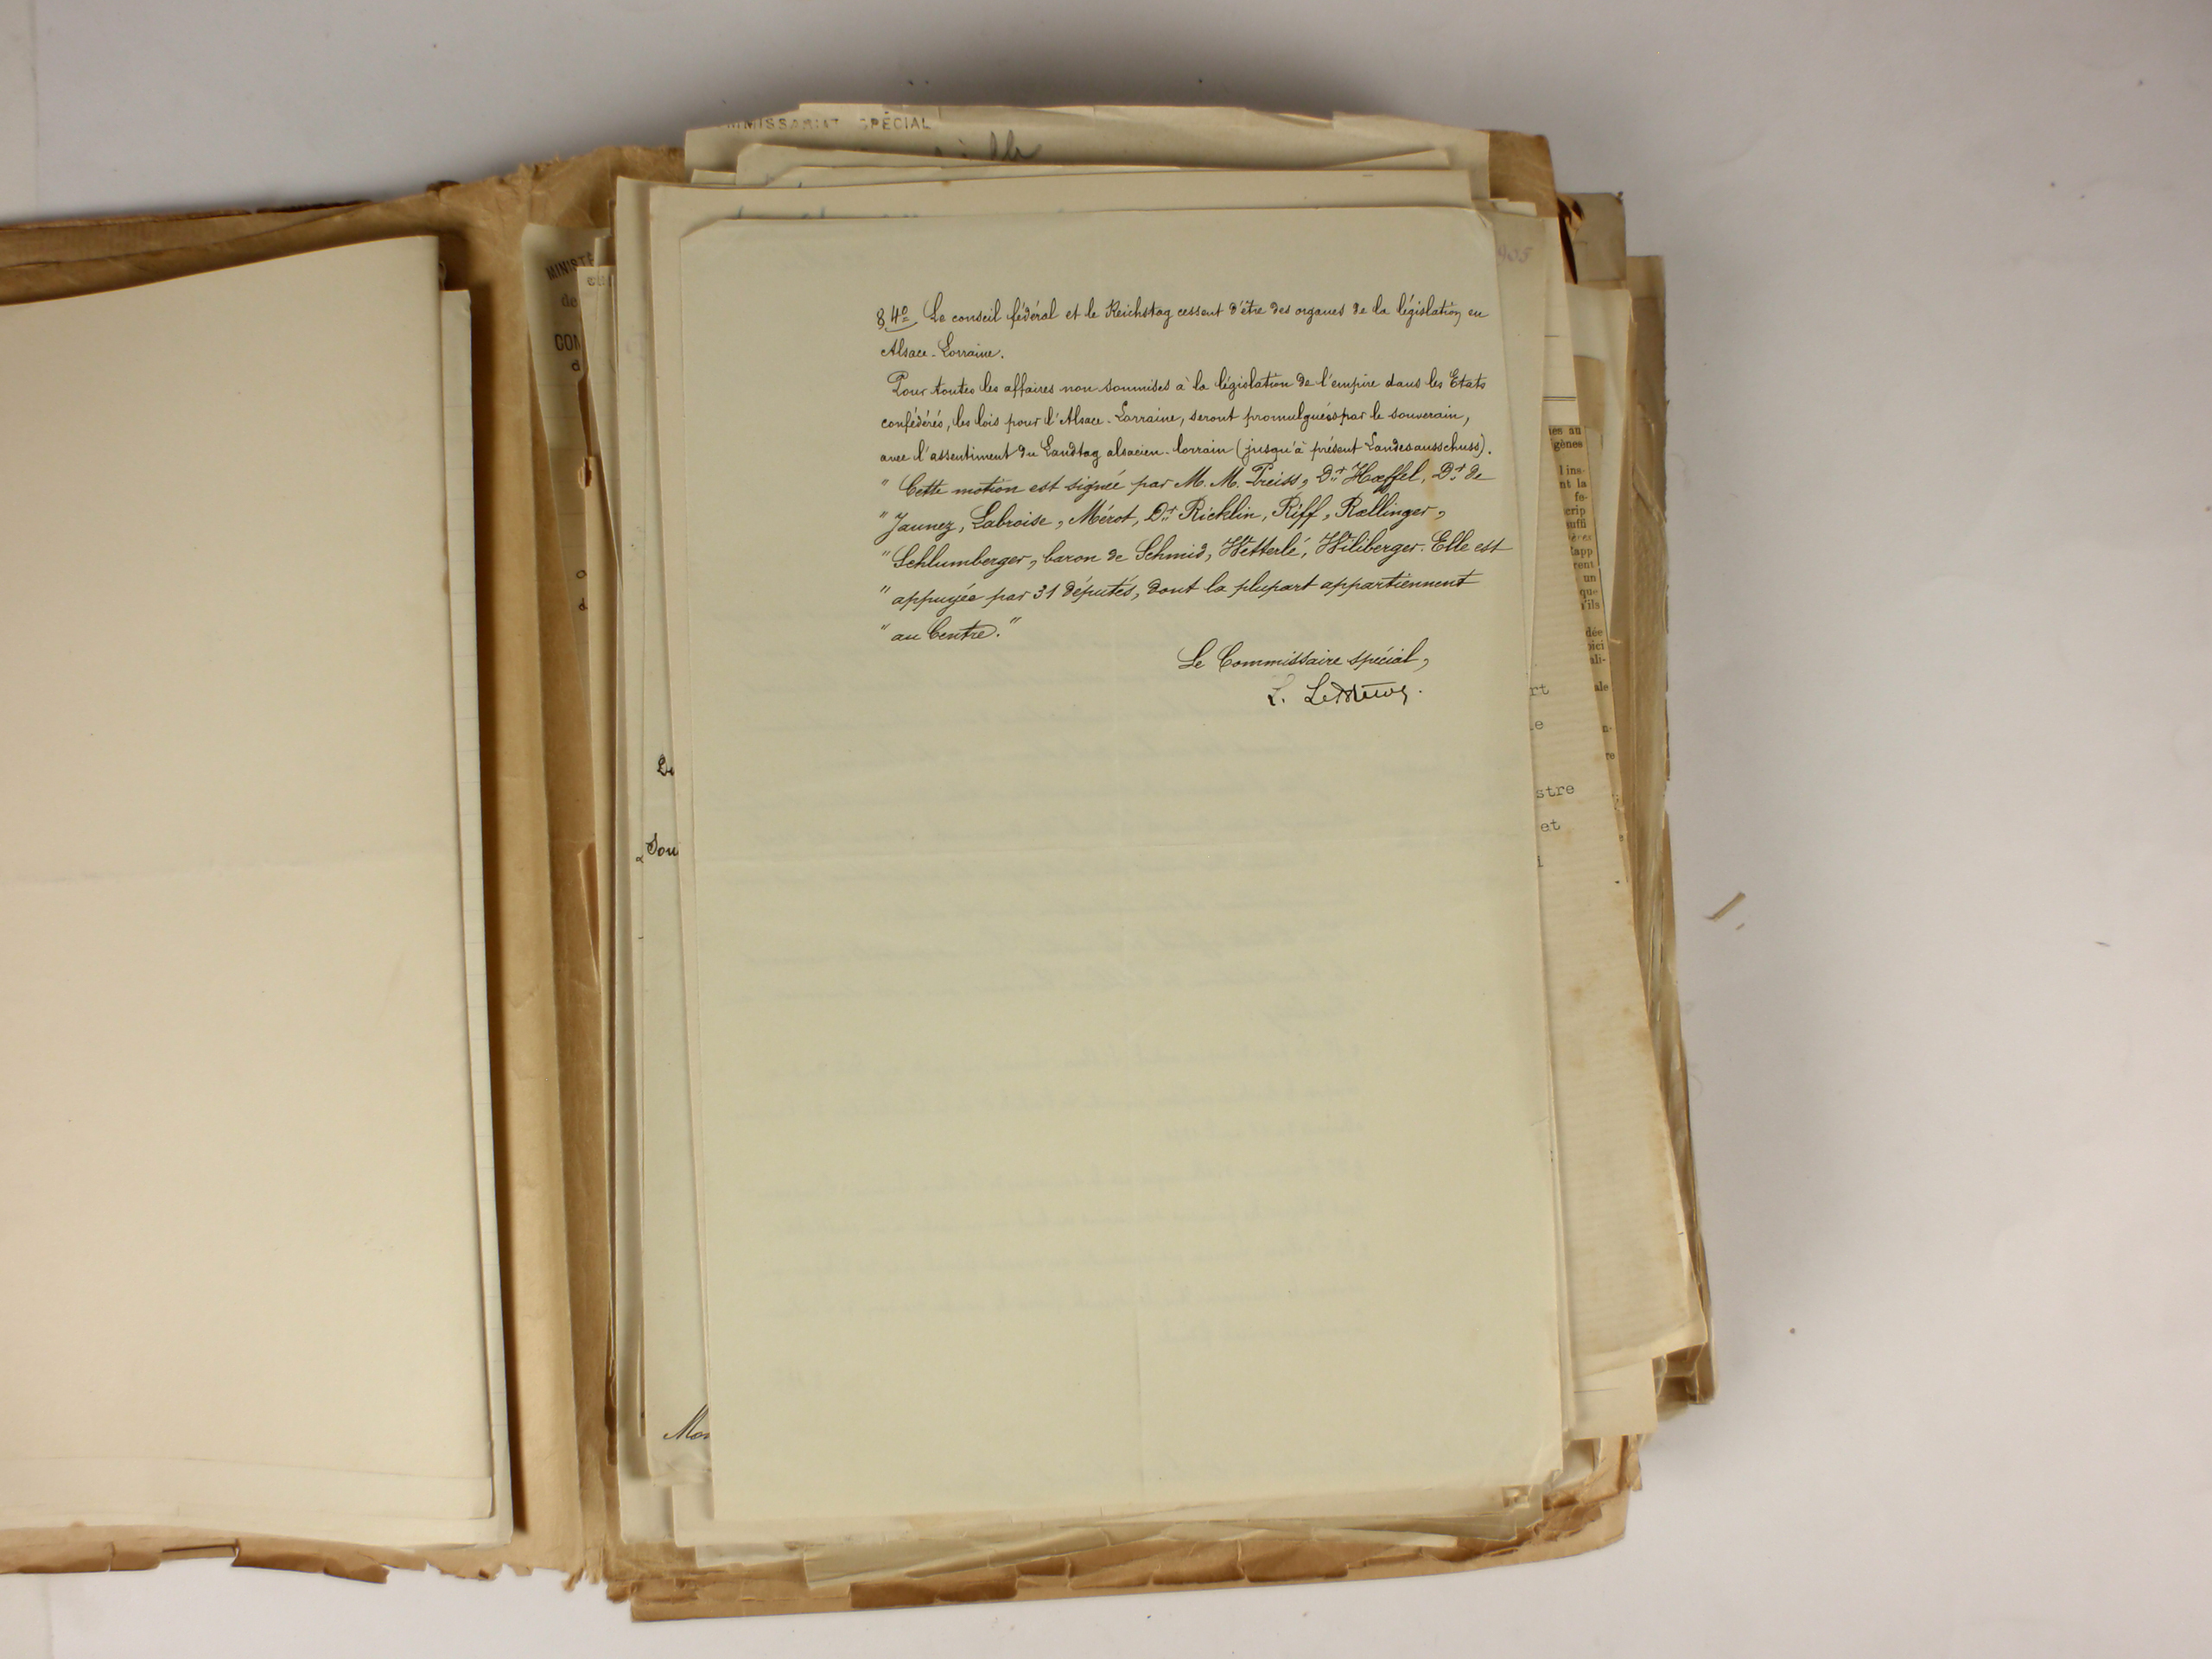 COMMISSARIAT SPÉCIAL
905
MINISTÈ
de
CON
d
§ 4º Le conseil fédéral et le Reichstag cessent d'être des organes de la législation en
Alsace-Lorraine.
Pour toutes les affaires non soumises à la législation de l'empire dans les Etats
confédérés, les lois pour l'Alsace-Lorraine, seront promulguées par le souverain,
avec l'assentiment du Landtag alsacien-lorrain (jusqu'à présent Landesausschuss).
" Cette motion est signée par M. M. Preiss, Dr Hœffel, Dr de
" Jaunez, Labroise, Mérot, Dr Ricklin, Riff, Rœllinger,
" Schlumberger, baron de Schmid, Wetterlé, Wiliberger. Elle est
" appuyée par 31 députés, dont la plupart appartiennent
" au Centre."
Le Commissaire spécial,
De
Sou
Mon
les au
igènes
l ins-
nt la
fe-
crip
suffi
ières
l'app
ront
un
que
s'ils
dée
oici
ali-
ale
rt
e
stre
et
i